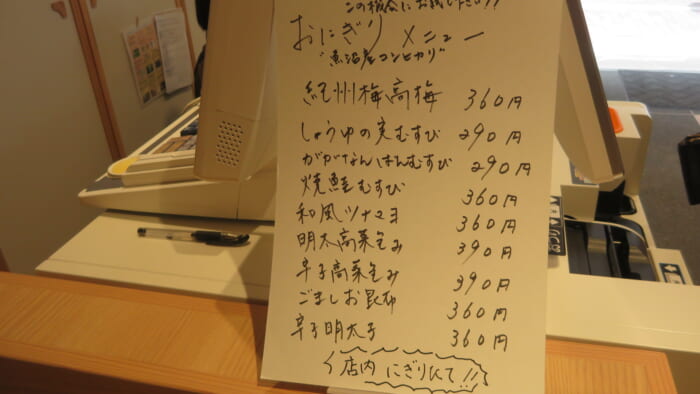 この機会にお試し下さい!!
おにぎりメニュー
"魚沼産コシヒカリ"
紀州梅高梅 360円
しょうゆの実むすび 290円
ががなんばんむすび 290円
焼鮭むすび 360円
和風ツナマヨ 360円
明太高菜包み 390円
辛子高菜包み 390円
ごましお昆布 360円
辛子明太子 360円
店内にぎりたて!!